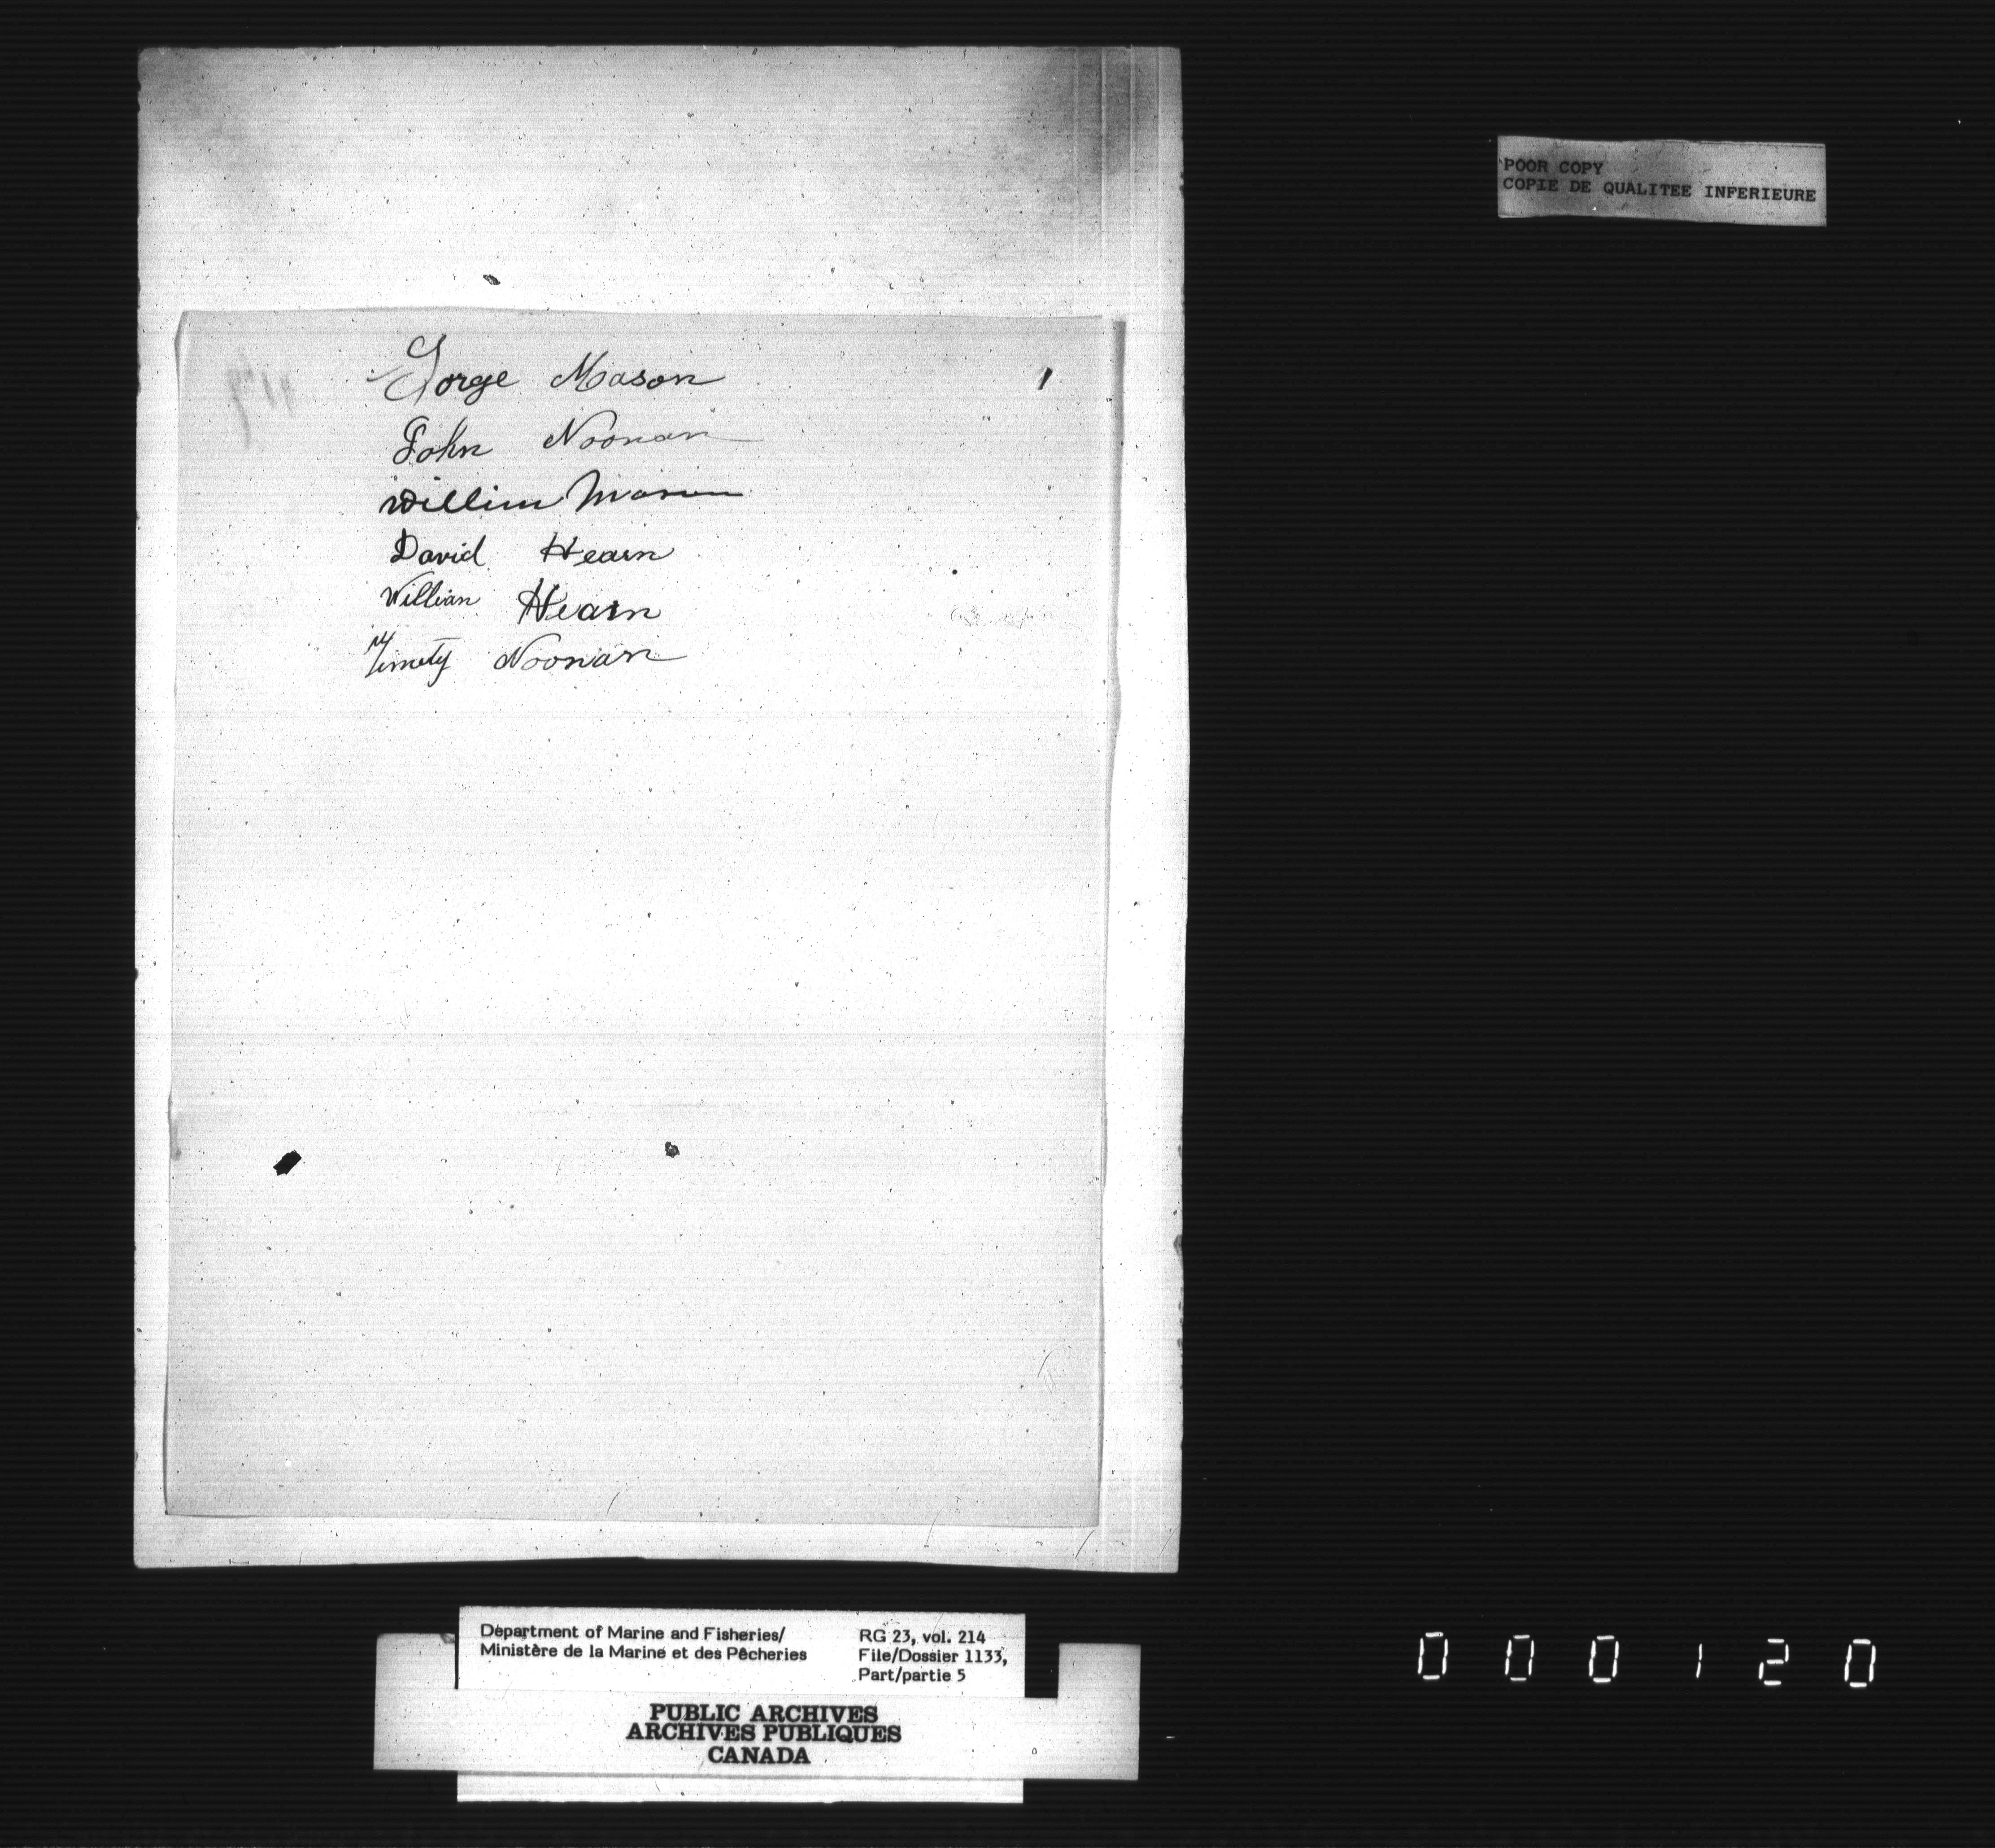 Gorge Mason
John Noonan
Willim Mason
David Hearn
Willian Hearn
Timety Noonan
POOR COPY
COPIE DE QUALITEE INFERIEURE
Department of Marine and Fisheries/
Ministère de la Marine et des Pêcheries
RG 23, vol. 214
File/Dossier 1133,
Part/partie 5
PUBLIC ARCHIVES
ARCHIVES PUBLIQUES
CANADA
000120